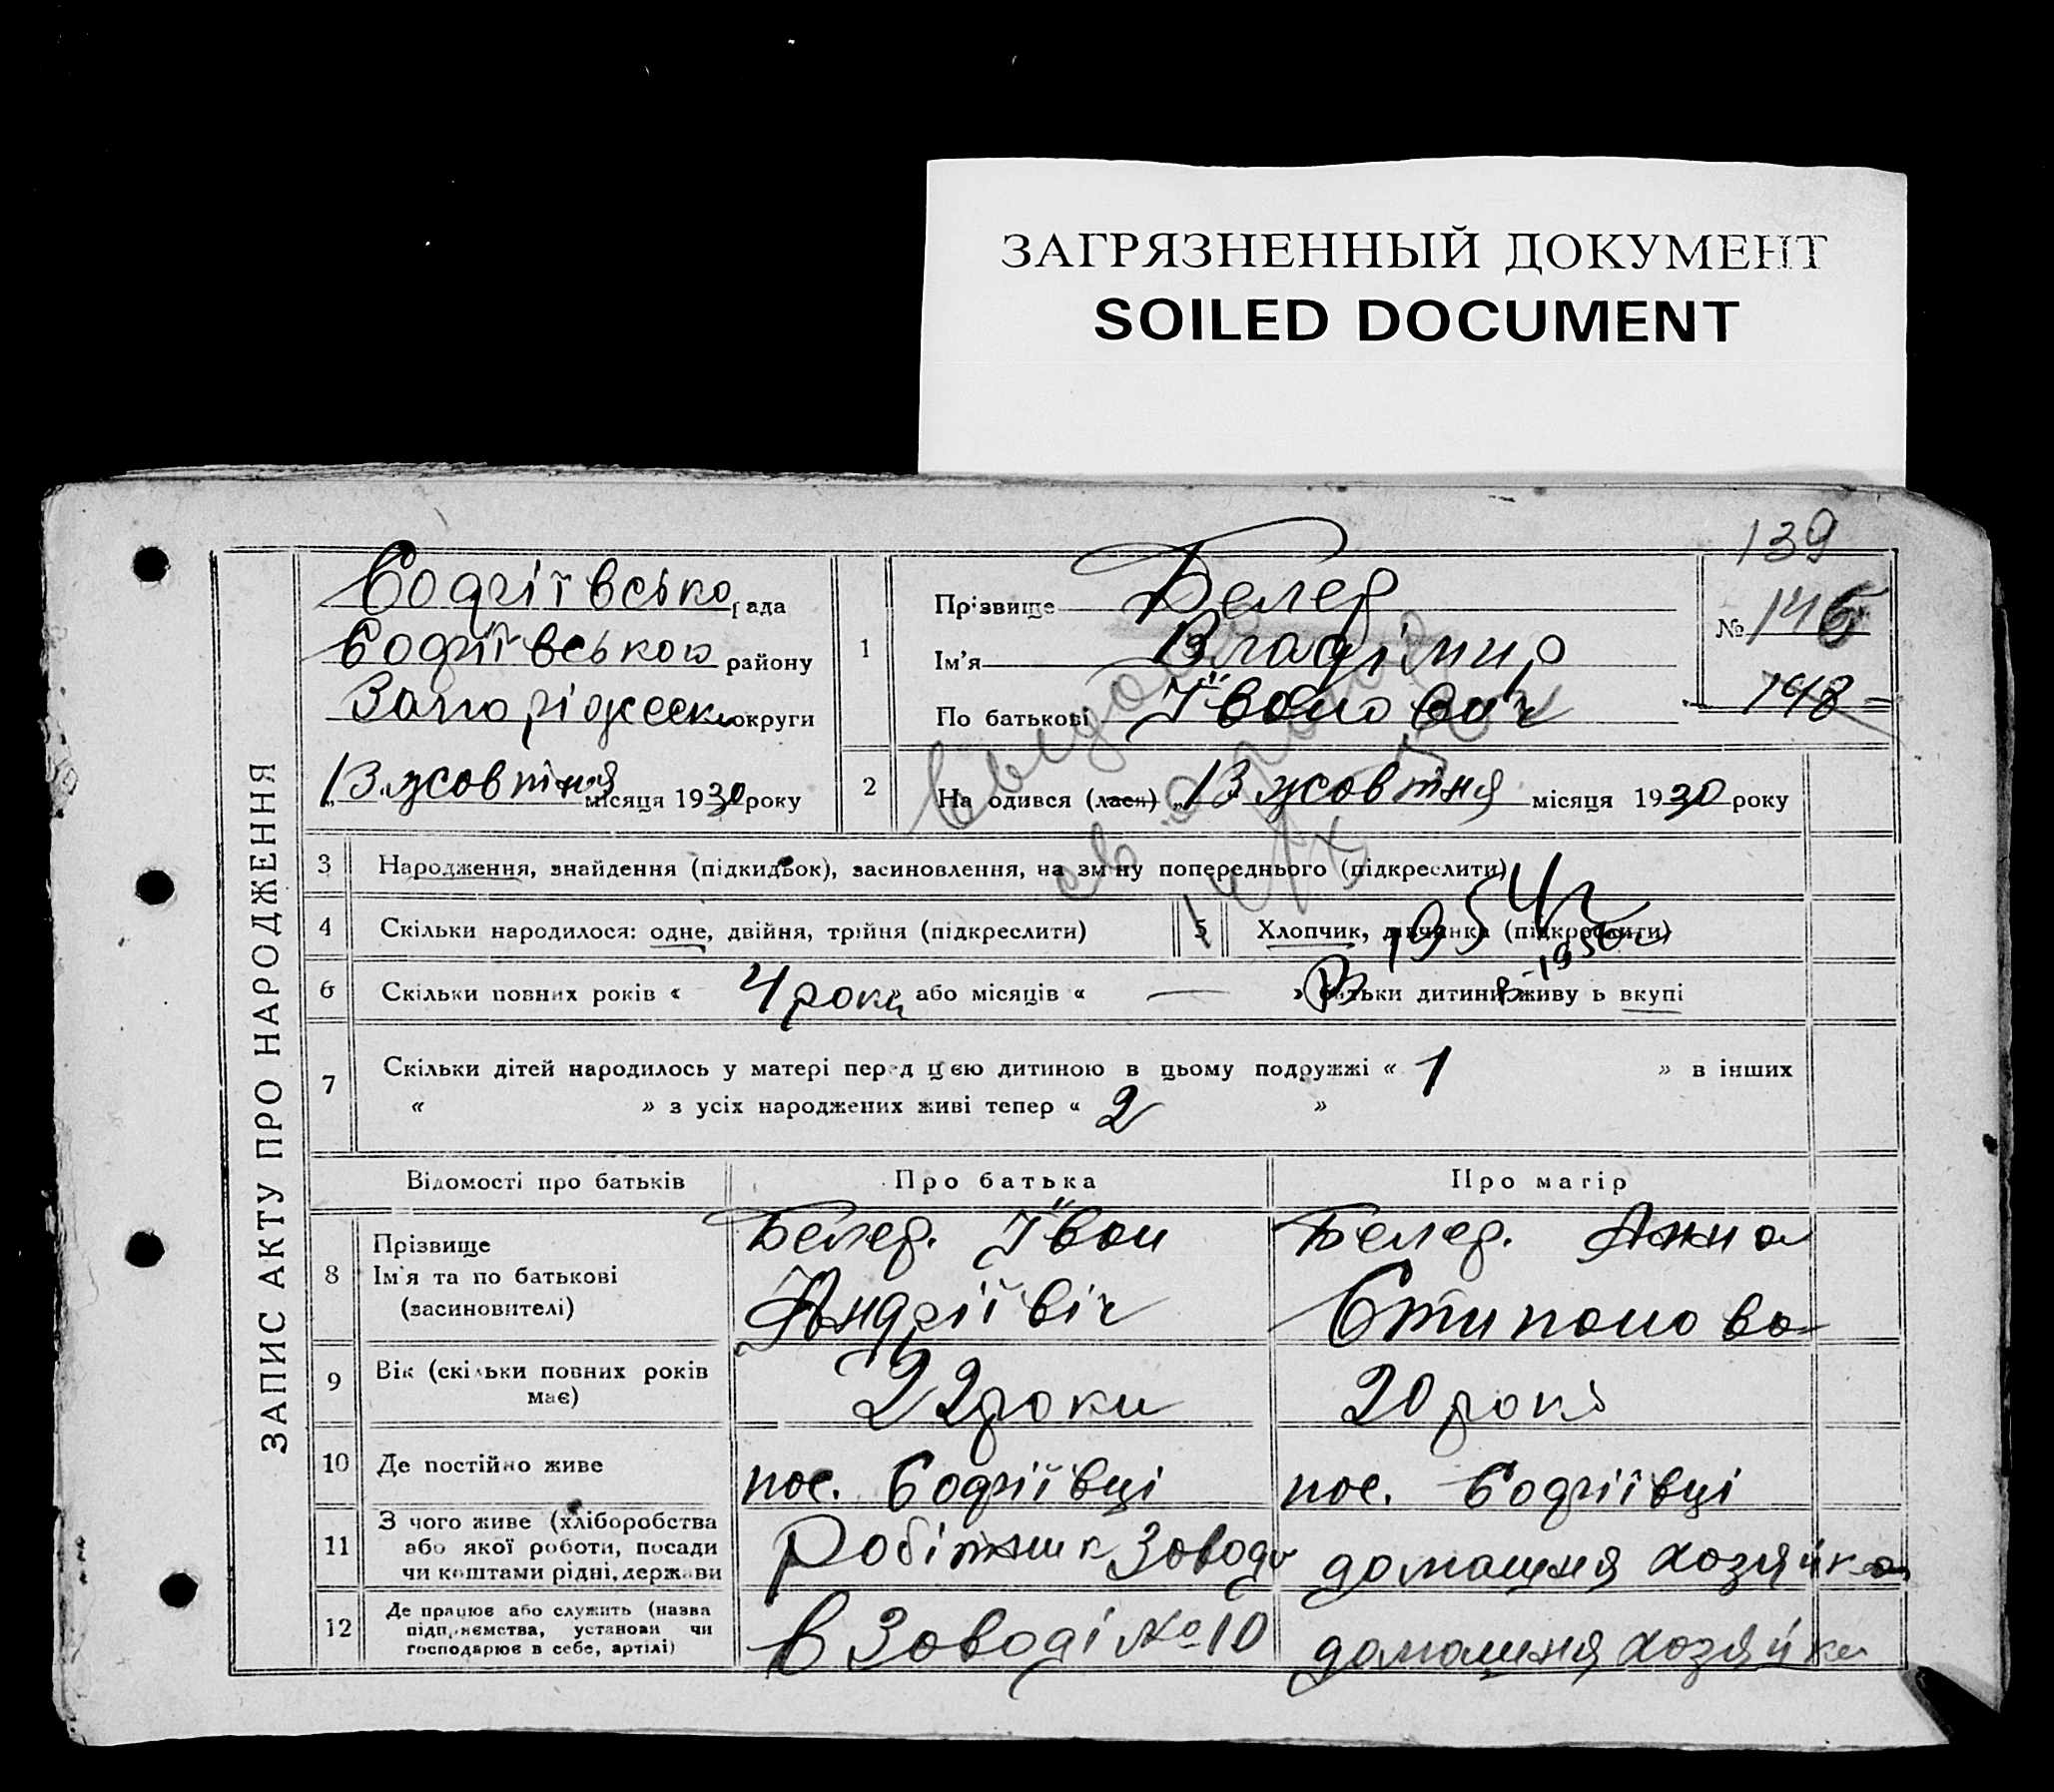 ЗАГРЯЗНЕННЫЙ ДОКУМЕНТ
SOILED DOCUMENT
139
ЗАПИС АКТУ ПРО НАРОДЖЕННЯ
Софіївсько рада
Софіївською району
Запоріжськ округи
"13" жовтня місяця 1930 року
1
Прізвище Белед
Ім'я Владімир
По батькові Їванович
№ 146
148
2 На одився (лася) "13" жовтня місяця 1930 року
3 Народження, знайдення (підкидьок), засиновлення, на зміну попереднього (підкреслити)
4 Скільки народилося: одне, двійня, трійня (підкреслити)
5 Хлопчик, дівчинка (підкреслити)
1954г
6 Скільки повних років « 4 роки » або місяців « — » батьки дитини живуть вкупі
7 Скільки дітей народилось у матері перед цією дитиною в цьому подружжі « 1 » в інших
« » з усіх народжених живі тепер « 2 »
Відомості про батьків Про батька Про матір
8 Прізвище Ім'я та по батькові (засиновителі)
Белед. Їван
Андріївіч
Белед. Анна
Стипанова
9 Вік (скільки повних років має) 22 роки 20 рокі
10 Де постійно живе пос. Софіївці пос. Софіївці
11 З чого живе (хліборобства або якої роботи, посади чи коштами рідні, держави Робітник Заводу домашня хозяйка
12 Де працює або служить (назва підприємства, установи чи господарює в себе, артілі) в Заводі № 10 домашня хозяйка